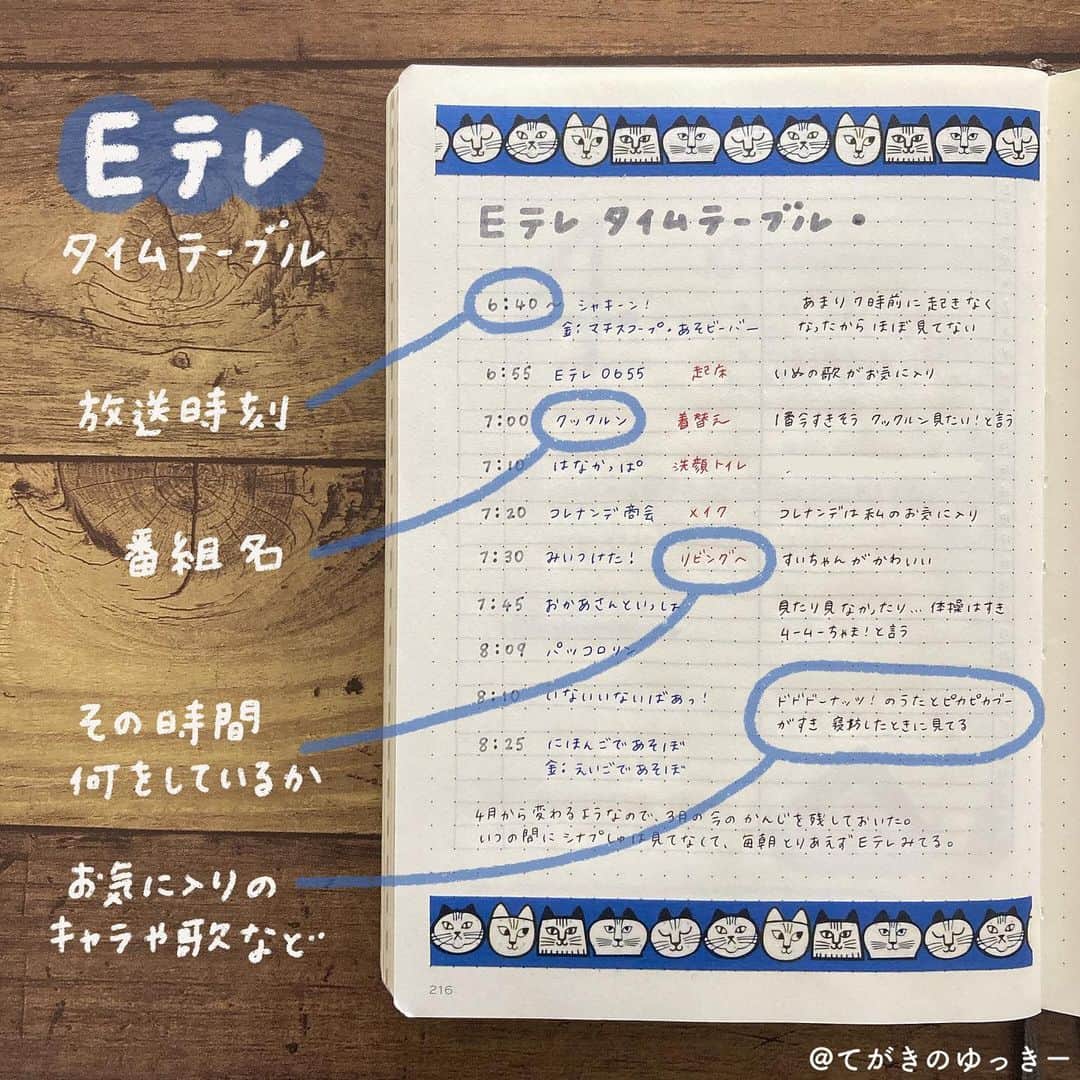 Eテレ
タイムテーブル
放送時刻
番組名
その時間
何をしているか
お気に入りの
キャラや歌など
Eテレ タイムテーブル・
6:40〜 シャキーン! あまり7時前に起きなく
金:マチスコープ・あそビーバー なったからほぼ見てない
6:55 Eテレ0655 起床 いぬの歌がお気に入り
7:00 クックルン 着替え 1番今すきそう クックルン見たい!と言う
7:10 はなかっぱ 洗顔トイレ
7:20 コレナンデ商会 メイク コレナンデは私のお気に入り
7:30 みいつけた! リビングへ すいちゃんがかわいい
7:45 おかあさんといっしょ 見たり見なかったり… 体操はすき
ムームーちゃま!と言う
8:09 パッコロリン
8:10 いないいないばあっ! ドドドーナッツ!のうたとピカピカブー
がすき 寝坊したときに見てる
8:25 にほんごであそぼ
金:えいごであそぼ
4月から変わるようなので、3月の今のかんじを残しておいた。
いつの間にシナプしゅは見てなくて、毎朝とりあえずEテレみてる。
216
@てがきのゆっきー